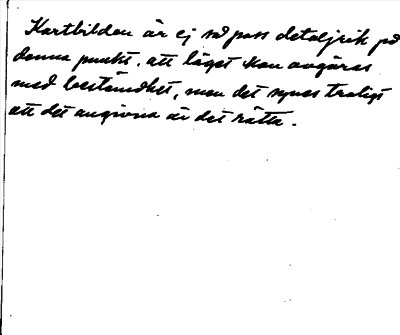 Kartbilden är ej så pass detaljrik på
denna punkt, att läget kan avgöras
med bestämdhet, men det synes troligt
att det angivna är det rätta.